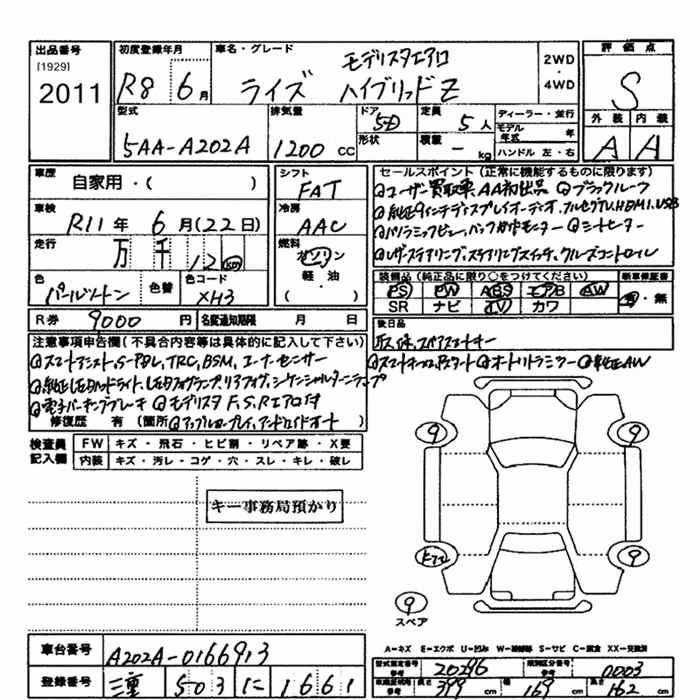 出品番号 初度登録年月 車名・グレード 評価点
[1929] 2011
R8 6月
モデリスタエアロ
ライズ ハイブリッドZ
2WD・4WD
S
型式 排気量 ドア 定員 ディーラー・並行 外装 内装
5AA-A202A 1200cc 5D 5人 モデル年式 年
形状 積載 - kg ハンドル 左・右
A A
車歴 自家用・( )
シフト FAT
セールスポイント(正常に機能するものに限ります)
車検 R11年 6月(22日)
冷房 AAC
◎ユーザー買取車 AA初出品 ◎ブラックルーフ
◎純正9インチディスプレイオーディオ、フルセグTV,HDMI,USB
◎パノラミックビュー、バックガイドモニター ◎シートヒーター
◎レザーステアリング、ステアリングスイッチ、クルーズコントロール
走行 万 千 12 km
燃料 ガソリン 軽・油 ( )
色 パールツートン 色替 色コード XH3
装備品(純正品に限り○をつけてください) 新車保証書
PS PW ABS エアB AW 有・無
SR ナビ TV カワ
R券 9000円 名変通知期限 月 日
後日品
取、保、スペアスマートキー
注意事項申告欄(不具合内容等は具体的に記入して下さい)
◎スマートアシスト、S-PBL,TRC,BSM,コーナーセンサー
◎スマートキー2ヶ、Pスタート ◎オートリトラミラー ◎純正AW
◎純正LEDヘッドライト、LEDフォグランプ、リアフォグ、シーケンシャルターンランプ
◎電子パーキングブレーキ ◎モデリスタF,S,Rエアロ付
修復歴 有 (箇所 ◎アップルカープレイ、アンドロイドオート)
検査員記入欄
FW キズ・飛石・ヒビ割・リペア跡・X要
内装 キズ・汚レ・コゲ・穴・スレ・キレ・破レ
キー事務局預かり
9 9
ドアエ 9
9
スペア
車台番号 A202A-0166913
A-キズ E-エクボ U-凹み W-補修跡 S-サビ C-腐食 XX-交換済
型式指定番号 参考 20296 類別区分番号 参考 0003
登録番号 三重 503 に 1661
長さ 399 cm 幅 169 cm 高さ 162 cm